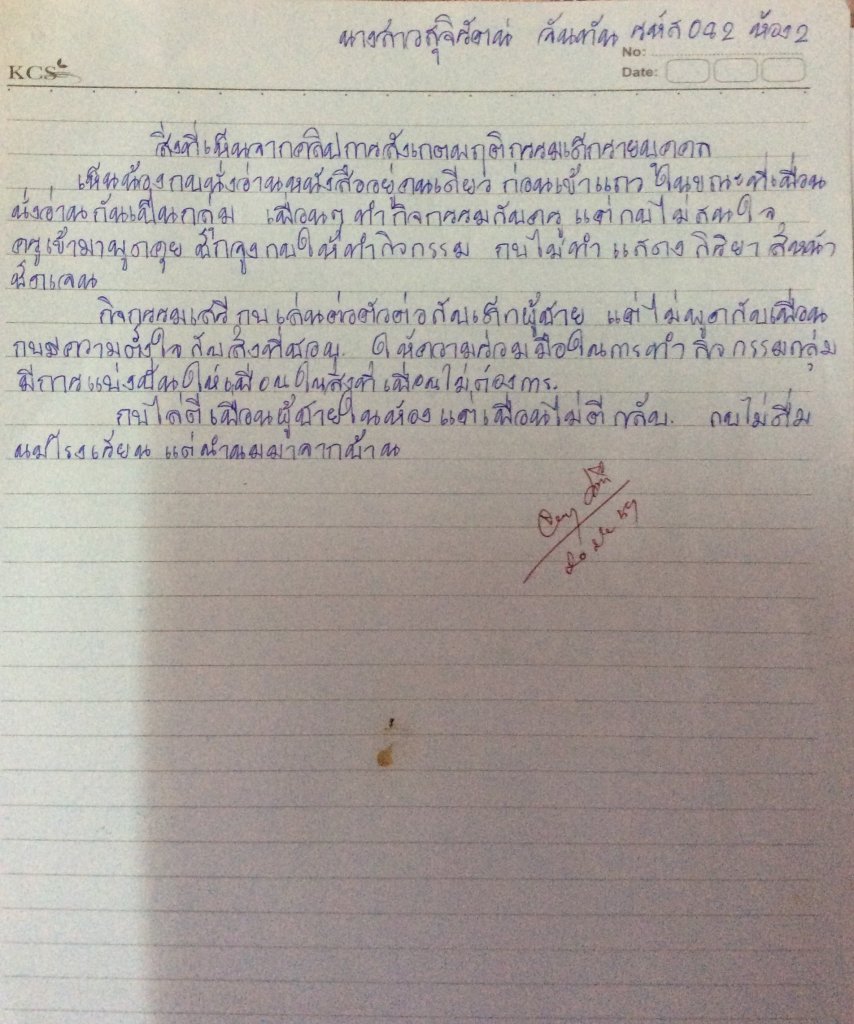 นางสาวสุจิรัตน์ จันทัน รหัส 042 ห้อง 2
No:
KCS
Date:
สิ่งที่เห็นจากคลิปการสังเกตพฤติกรรมเด็กรายบุคคล
เห็นน้องกบนั่งอ่านหนังสืออยู่คนเดียว ก่อนเข้าแถว ในขณะที่เพื่อน
นั่งอ่านกันเป็นกลุ่ม เพื่อนๆ ทำกิจกรรมกับครู แต่กบไม่สนใจ
ครูเข้ามาพูดคุย ชักจูงกบให้ทำกิจกรรม กบไม่ทำ แสดง กิริยา สีหน้า
ชัดเจน
กิจกรรมเสรี กบเล่นต่อตัวต่อกับเด็กผู้ชาย แต่ไม่พูดกับเพื่อน
กบมีความตั้งใจกับสิ่งที่ชอบ. ให้ความร่วมมือในการทำ กิจกรรมกลุ่ม
มีการแบ่งปันให้เพื่อนในสิ่งที่เพื่อนไม่ต้องการ.
กบได้ตีเพื่อนผู้ชายในห้อง แต่เพื่อนไม่ตีกลับ. กบไม่ดื่ม
นมโรงเรียน แต่นำนมมาจากบ้าน